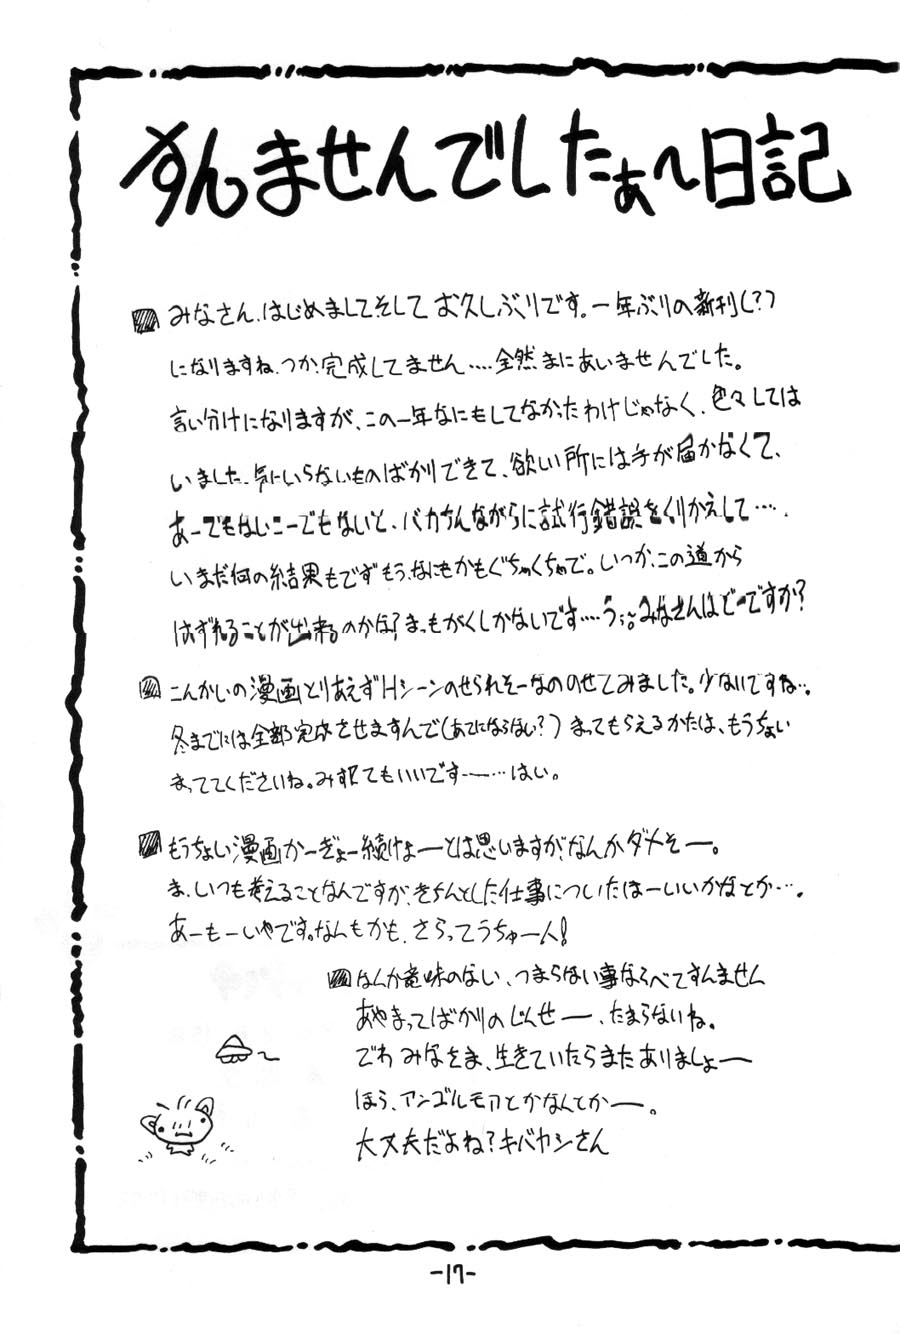 すんませんでしたぁ〜日記
みなさん、はじめまして、そして お久しぶりです。一年ぶりの新刊(?)
になりますね、つか、完成してません‥‥全然まにあいませんでした。
言い分けになりますが、この一年なにもしてなかったわけじゃなく、色々しては
いました、気にいらないものばかりできて、欲しい所には手が届かなくて、
あーでもないこーでもないと、バカちんながらに試行錯誤をくりかえして‥‥、
いまだ何の結果もでず もう、なにもかもぐちゃぐちゃで。いつか、この道から
はずれることが出来るのかな?まっもがくしかないです‥‥う;みなさんはどーですか?
こんかいの漫画とりあえずHシーンのせられそーなののせてみました。少ないですね‥。
冬までには全部完成させますんで(あてにならない?)まってもらえるかたは、もうちょい
まっててくださいね。み捨てもいいですー‥‥はい。
もうちょい漫画かーぎょー続けよーとは思いますが、なんかダメそー。
ま、いつも考えることなんですが、きちんとした仕事についたほーいいかなとか‥‥。
あーもーいやです。なんもかも、さらってうちゅー人!
なんか意味のない、つまらない事ならべてすんません
あやまってばかりのじんせー、たまらないね。
でわ みなさま、生きていたらまたありましょー
ほら、アンゴルモアとかなんとかー。
大丈夫だよね?キバヤシさん
-17-